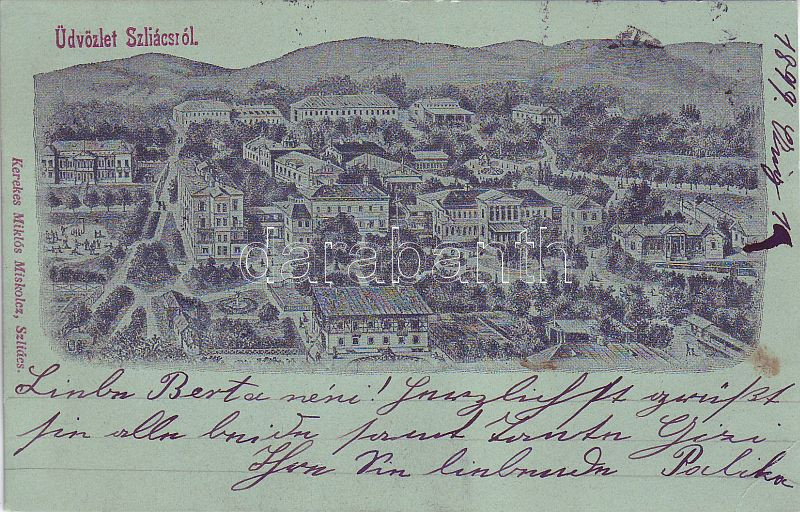 Üdvözlet Szliácsról.
1899. Aug 12
Kerekes Miklós Miskolcz, Szliács.
darabanth
Liebe Berta néni! Herzlichst grüßt
sie alle beide samt Tante Gizi
Ihre Sie liebende Palika